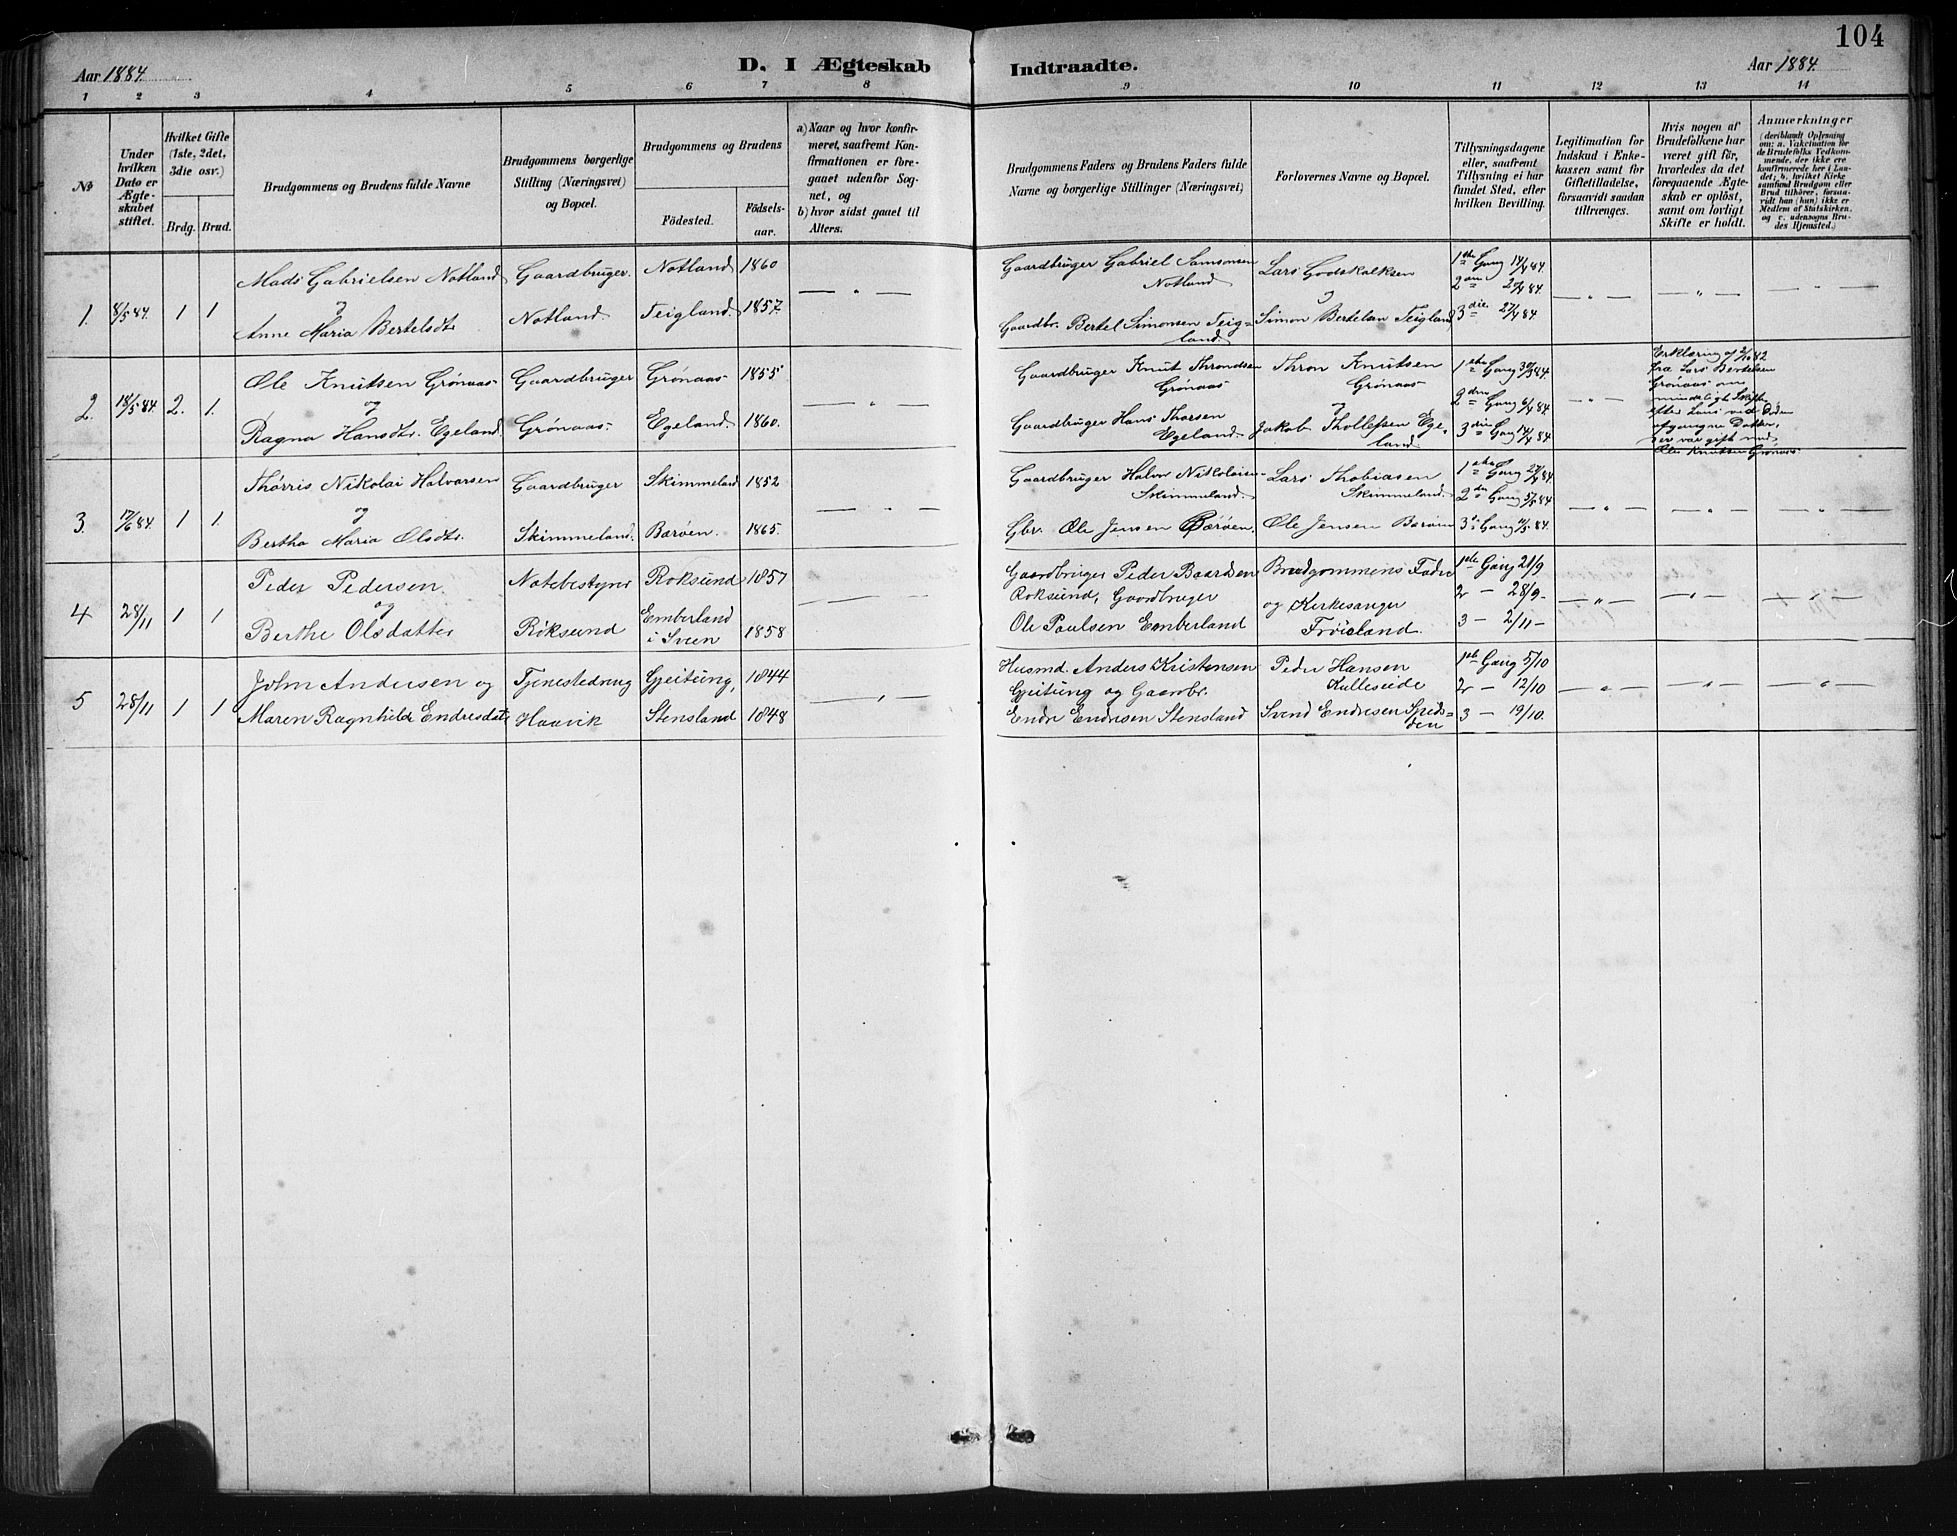 104
Aar 1884.
D. I Ægteskab Indtraadte.
Aar 1884.
1 2 3 4 5 6 7 8 9 10 11 12 13 14
No
Under hvilken Dato er Ægteskabet stiftet.
Hvilket Gifte (1ste, 2det, 3die osv.)
Brdg. Brud.
Brudgommens og Brudens fulde Navne
Brudgommens borgerlige Stilling (Næringsvei) og Bopæl.
Brudgommens og Brudens
Födested.
Födselsaar.
a) Naar og hvor konfirmeret, saafremt Konfirmationen er foregaaet udenfor Sognet, og
b) hvor sidst gaaet til Alters.
Brudgommens Faders og Brudens Faders fulde Navne og borgerlige Stillinger (Næringsvei)
Forlovernes Navne og Bopæl.
Tillysningsdagene eller, saafremt Tillysning ei har fundet Sted, efter hvilken Bevilling.
Legitimation for Indskud i Enkekassen samt for Giftetilladelse, forsaavidt saadan tiltrænges.
Hvis nogen af Brudefolkene har været gift för, hvorledes da det foregaaende Ægteskab er oplöst, samt om lovligt Skifte er holdt.
Anmærkninger
(deriblandt Oplysning om: a. Vakcination for de Brudefolks Vedkommende, der ikke ere konfirmerede her i Landet; b. hvilket Kirkesamfund Brudgom eller Brud tilhörer, forsaavidt han (hun) ikke er Medlem af Statskirken, og c. udensogns Brudes Hjemsted.)
Mads Gabrielsen Notland Gaardbruger. Notland 1860 Gaardbruger Gabriel Samsonsen Lars Godskalksen 1ste Gang 14/4 84.
Notland 2den 20/4 84
1. 8/5 84. 1 1 og — " — og — " — — " — — " —
Anne Maria Bertelsdtr Notland. Teigland. 1857 Gaardbr. Bertel Simonsen Teig= Simon Bertelsen Teigland 3die 27/4 84
land.
Ole Knutsen Grönaas Gaardbruger Grönaas 1855 Gaardbruger Knut Throndsen Thron Knutsen 1ste Gang 30/3 84. Erklæring af 2/10 82
Grönaas Grönaas fra Lars Bertelsen
Grönaas om
2. 18/5 84. 2. 1. og — " — og 2den Gang 6/4 84. — " — mindeligt Skifte
Ragna Hansdtr. Egeland. Grönaas. Egeland. 1860. Gaardbruger Hans Thorsen Jakob Thollefsen Ege= 3die Gang 14/4 84 efter Lars ved Döden
Egeland. land. afgangne Datter,
der var gift med
Ole Knutsen Grönaas
Thörris Nikolai Halvorsen Gaardbruger Skimmeland 1852 Gaardbruger Halvor Nikolaisen Lars Thobiasen 1ste Gang 27/4 84
Skimmeland. Skimmeland. 2den Gang 5/5 84
3 17/6 84. 1 1. og — " — — " — — " — — " —
Bertha Maria Olsdtr. Skimmeland. Baröen. 1865. Gbr. Ole Jensen Baröen. Ole Jensen Baröen 3die Gang 11/5 84.
Peder Pedersen. Notebestyrer Roksund 1857 Gaardbruger Peder Baardsen Brudgommens Fader 1ste Gang 21/9
4 28/11 1 1 og Emberland Roksund, Gaardbruger og Kirkesanger 2 — 28/9 — — " — — " — — " —
Berthe Olsdatter Röksund i Sveen 1858 Ole Paulsen Emberland Fröisland. 3 — 2/11 —
John Andersen og Tjenestedreng Gjeitung, 1844 Husmd. Anders Kristensen Peder Hansen 1ste Gang 5/10
5 28/11 1 1 — " — Gjeitung og Gaardbr. Kulleseide 2 — 12/10 — " — — " — — " —
Maren Ragnhilde Endresdatr Haavik Stensland 1848 Endre Endresen Stensland Svend Endresen 3 — 19/10.